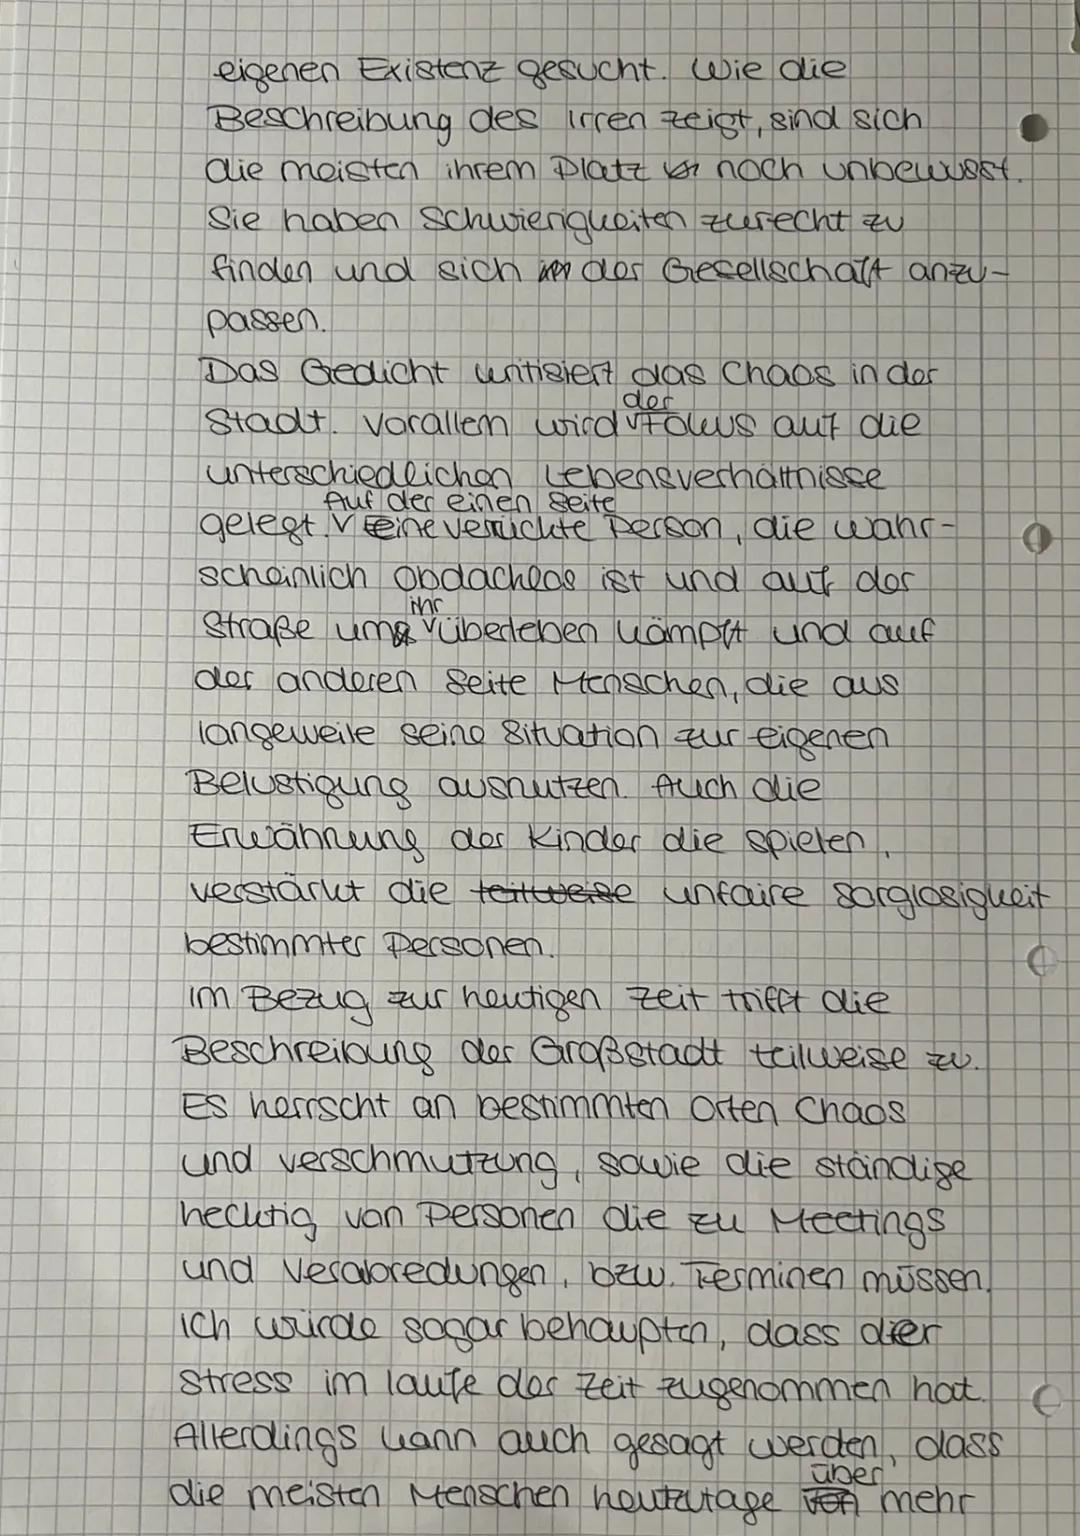 eigenen Existenz gesucht. Wie die
Beschreibung des Irren zeigt, sind sich
die meisten ihrem Platz noch unbewusst.
Sie haben Schwierigkeiten zurecht zu
finden und sich der Gesellschaft anzu-
passen.
Das Gedicht kritisiert das Chaos in der
der
Stadt. Vorallem wird Fokus auf die
unterschiedlichen Lebensverhältnisse
Auf der einen Seite
gelegt. eine verrückte Person, die wahr-
scheinlich obdachlos ist und auf der
ihr
Straße ums überleben kämpft und auf
der anderen Seite Menschen, die aus
langeweile seine Situation zur eigenen
Belustigung ausnutzen. Auch die
Erwähnung der Kinder die spielen,
verstärkt die teilweise unfaire sorglosigkeit
bestimmter Personen.
Im Bezug zur heutigen Zeit trifft die
Beschreibung der Großstadt teilweise zu.
Es herrscht an bestimmten Orten Chaos
und verschmutzung, sowie die ständige
hecktig von Personen die zu Meetings
und Verabredungen, bzw. Terminen müssen.
Ich würde sogar behaupten, dass der
stress im laufe der Zeit zugenommen hat.
Allerdings kann auch gesagt werden, dass
über
die meisten Menschen heutzutage von mehr